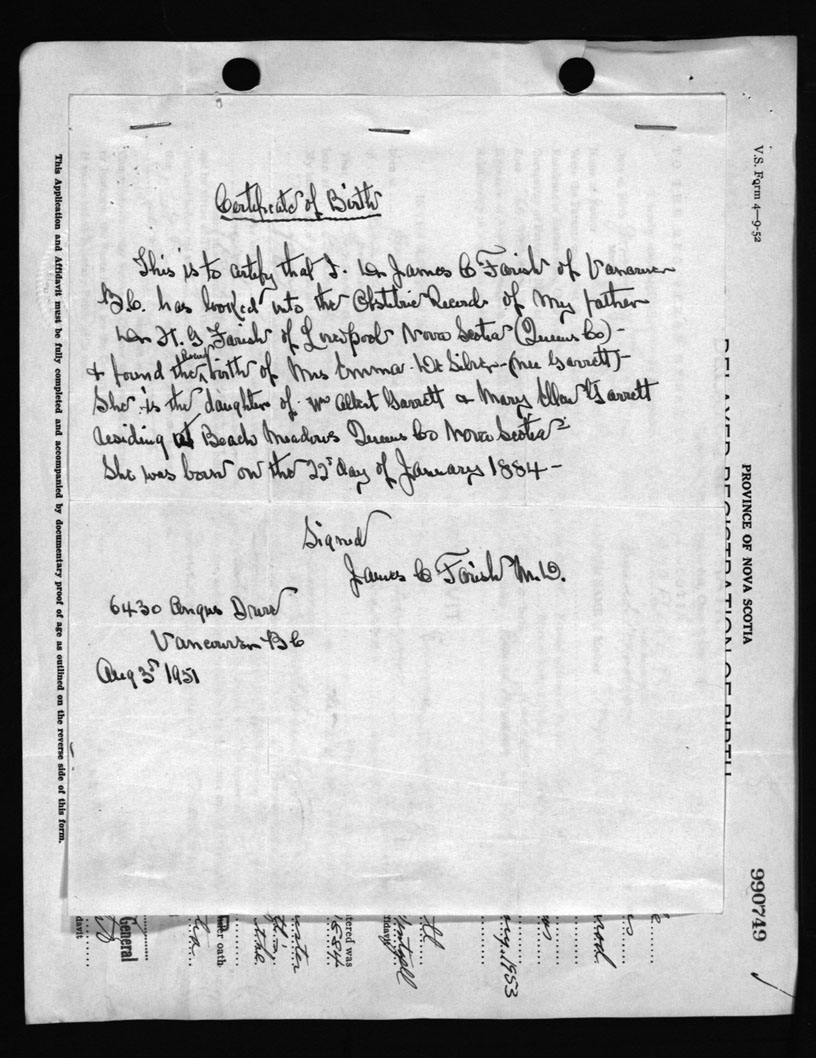 Certificate of Birth
This is to certify that I. Dr James C Farish of Vancouver
B.C. has looked into the Obstetric Records of my father
Dr H. G Farish of Liverpool Nova Scotia (Queens Co) -
& found the birth of Mrs Emma De Silver - (nee Garrett) -
She is the daughter of Wm Albert Garrett & Mary Ellen Garrett
residing at Beach Meadows Queens Co Nova Scotia
She was born on the 22 day of January 1884 -
Signed
James C Farish M.D.
6430 Angus Drive
Vancouver BC
Aug 3 1951
This Application and Affidavit must be fully completed and accompanied by documentary proof of age as outlined on the reverse side of this form.
V.S. Form 4—9-52
PROVINCE OF NOVA SCOTIA
DELAYED REGISTRATION OF BIRTH
990749
1953
tered was
1884
her oath
General
davit